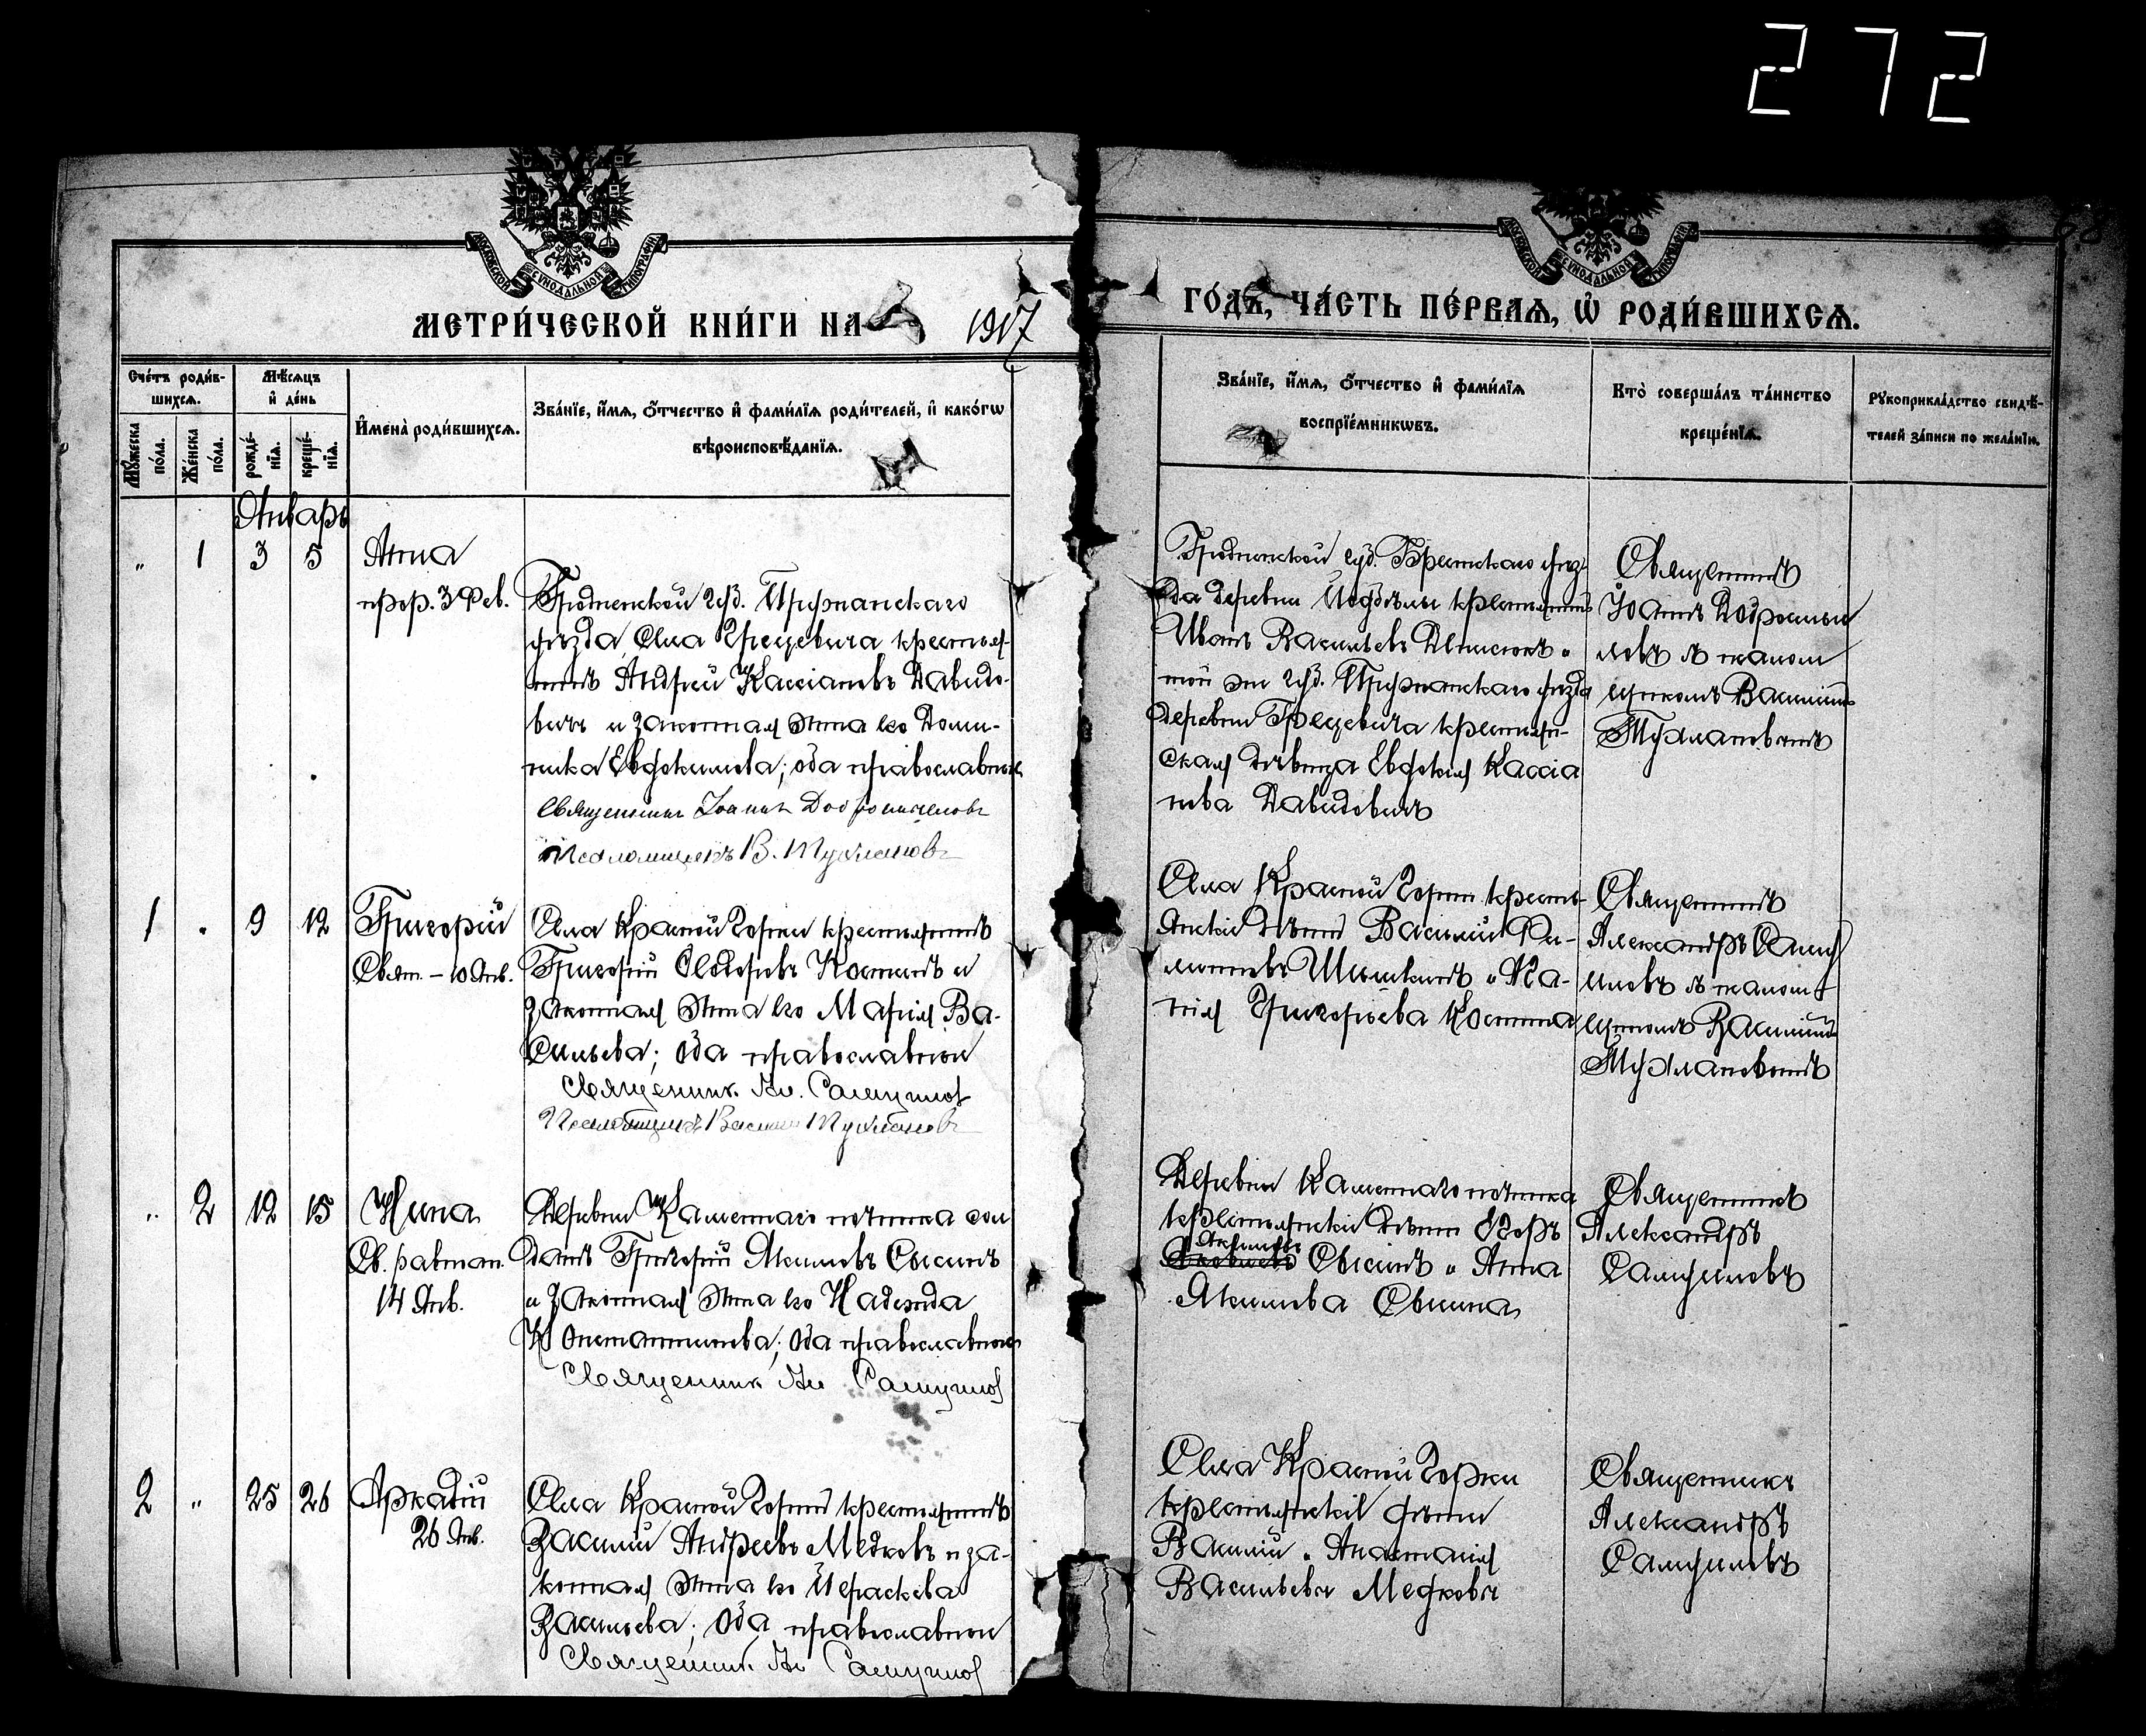 272
68
МЕТРИ́ЧЕСКОЙ КНИ́ГИ НА 1917
ГО́ДЪ, ЧА́СТЬ ПЕ́РВАѦ, Ѡ҆ РОДИ́ВШИХСѦ.
Сче́тъ роди́в-
шихсѧ.
Мѣ́сѧцъ
и҆ де́нь
Мꙋ́жеска
по́ла.
Же́нска
по́ла.
рожде́-
нїѧ.
креще́-
нїѧ.
И҆мена̀ роди́вшихсѧ.
Зва́нїе, и҆́мѧ, ѻ҆́тчество и҆ фами́лїѧ роди́телей, и҆ како́гѡ
вѣроисповѣ́данїѧ.
Зва́нїе, и҆́мѧ, ѻ҆́тчество и҆ фами́лїѧ
воспрїе́мникѡвъ.
Кто̀ соверша́лъ та́инство
креще́нїѧ.
Рꙋкоприкла́дство свидѣ́-
телей за́писи по жела́нїю.
Январь
„ 1 3 5 Анна
прор. 3 Фев.
Гродненской губ. Пружанскаго
уѣзда, села Грецевича крестья-
нинъ Андрей Кассіановъ Давидо-
вичъ и законная жена его Доми-
ника Евфокимова; оба православные
Священникъ Іоаннъ Добромысловъ
Псаломщикъ В. Тухлановъ
Гродненской губ. Брестскаго уѣз-
да деревни крестьянинъ
Иванъ Васильевъ Денисюкъ и
той же губ. Пружанскаго уѣзда
деревни Грецевича крестьян-
ская дѣвица Евфокія Кассіа
нова Давидовичъ
Священникъ
Іоаннъ Добромыс
ловъ съ псалом
щикомъ Василіемъ
Тухлановымъ
1 „ 9 12 Григорій
Свят. – 10 Янв.
Села Красной Горки крестьянинъ
Григорій Свободовъ Костинъ и
законная жена его Марія Ва-
сильева; оба православные
Священникъ Ал. Самуиловъ
Псаломщикъ Василій Тухлановъ
Села Красной Горки кресть-
янскіе дѣти Василій Фи-
липповъ Шишкинъ и Ма-
рія Григорьева Костина
Священникъ
Александръ Саму
иловъ съ псалом-
щикомъ Василіемъ
Тухлановымъ
„ 2 12 15 Нина
Св. равноап.
14 Янв.
Деревни Каменнаго починка сол
датъ Григорій Якимовъ Сысинъ
и законная жена его Надежда
Константинова; оба православные
Священникъ Ал. Самуиловъ
Деревни Каменнаго починка
крестьянскіе дѣти Егоръ
Якимовъ
Сысинъ и Анна
Якимова Сысина
Священникъ
Александръ
Самуиловъ
2 „ 25 26 Аркадій
26 Янв.
Села Красной Горки крестьянинъ
Василій Андреевъ Медковъ и за-
конная жена его Параскева
Васильева; оба православные
Священникъ Ал. Самуиловъ
Села Красной Горки
крестьянскіе дѣти
Василій и Анастасія
Васильевы Медковы
Священникъ
Александръ
Самуиловъ